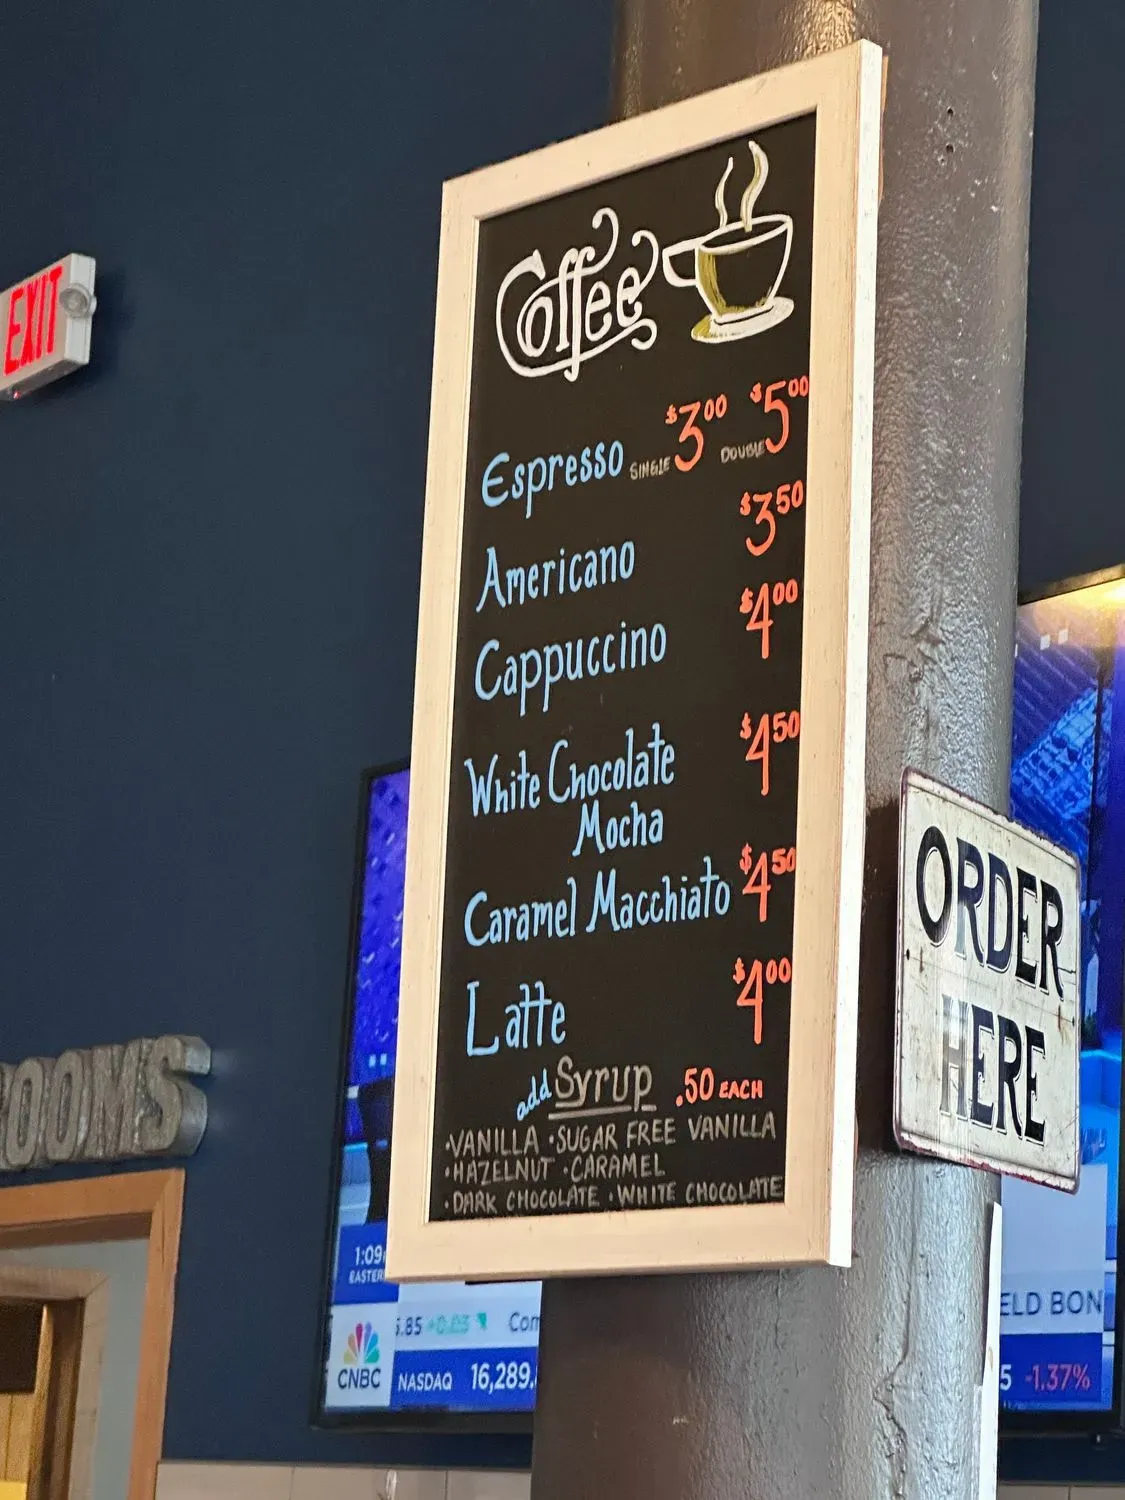 EXIT
Coffee
Espresso SINGLE $3.00 DOUBLE $5.00
Americano $3.50
Cappuccino $4.00
White Chocolate $4.50
Mocha
Caramel Macchiato $4.50
Latte $4.00
add Syrup .50 EACH
•VANILLA •SUGAR FREE VANILLA
•HAZELNUT •CARAMEL
•DARK CHOCOLATE •WHITE CHOCOLATE
ORDER
HERE
OOMS
1:09
EASTER
5.85 +0.03 Com
CNBC NASDAQ 16,289.
ELD BON
5 -1.37%